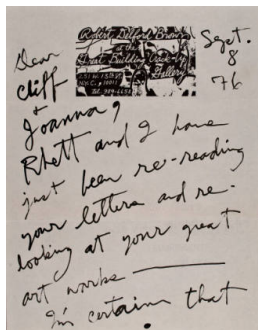 Robert Delford Brown
at the
Great Building Crack-Up
Gallery
251 W. 13th St
NYC, 10011
Sept.
8
76
Dear
Cliff
+
Joanna,
Rhett and I have
just been re-reading
your letters and re-
looking at your great
art works ———
I'm certain that